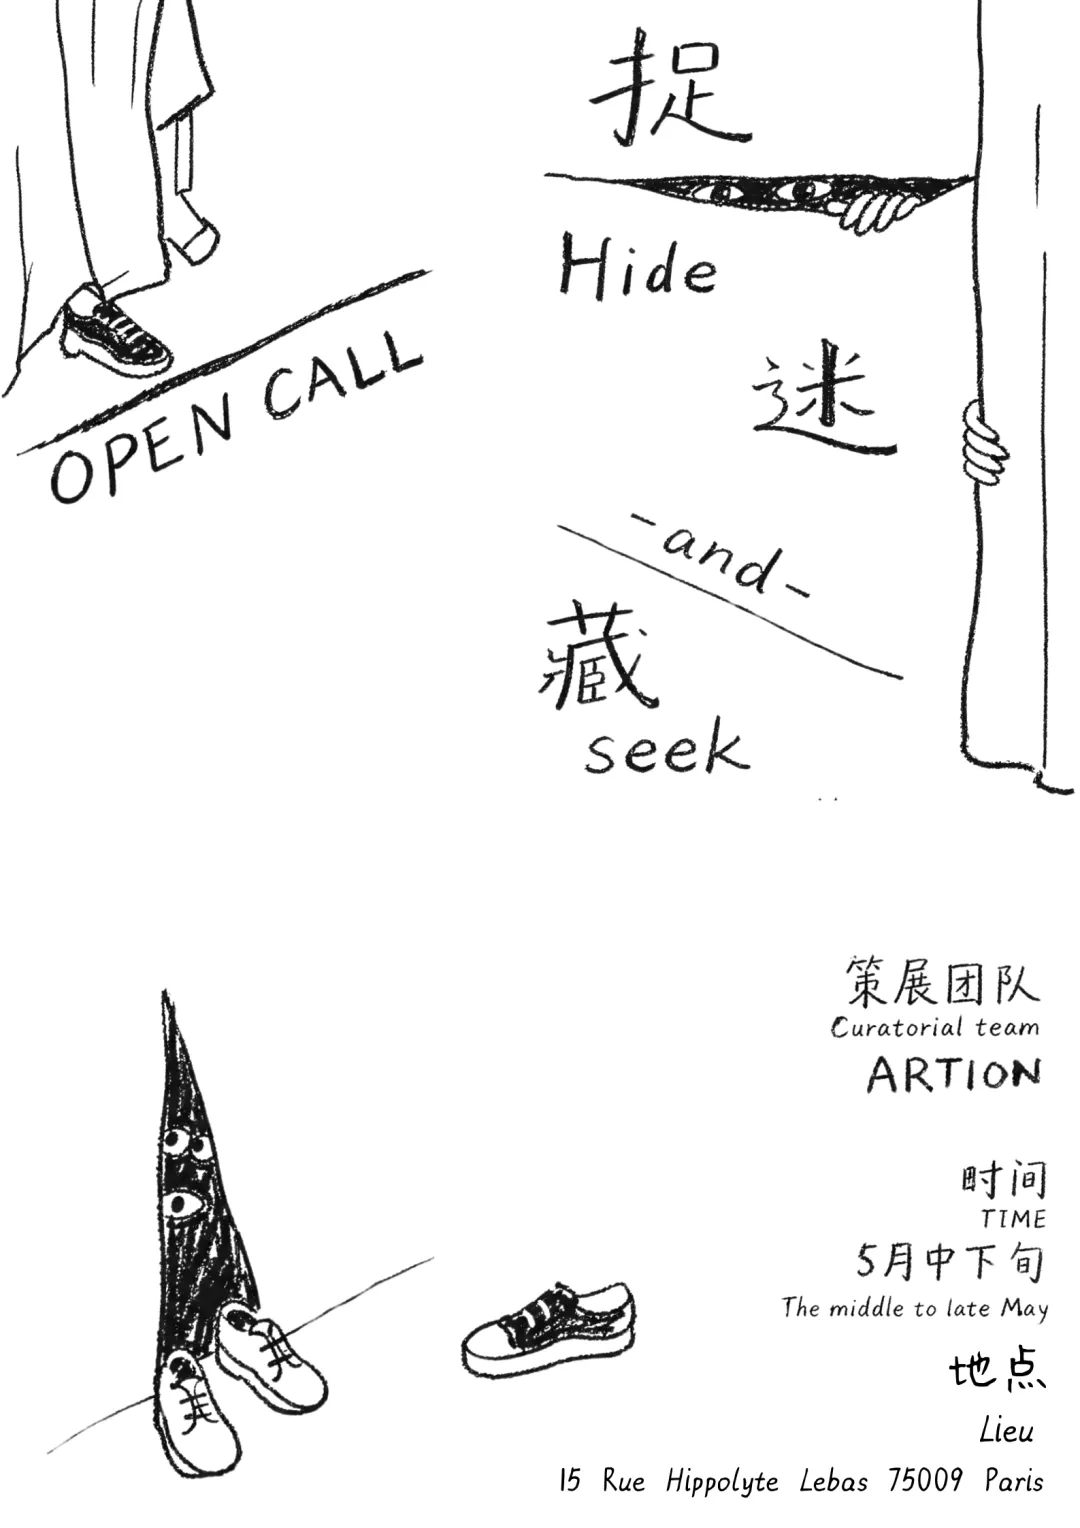 OPEN CALL
捉
Hide
迷
-and-
藏
seek
策展团队
Curatorial team
ARTION
时间
TIME
5月中下旬
The middle to late May
地点
Lieu
15 Rue Hippolyte Lebas 75009 Paris